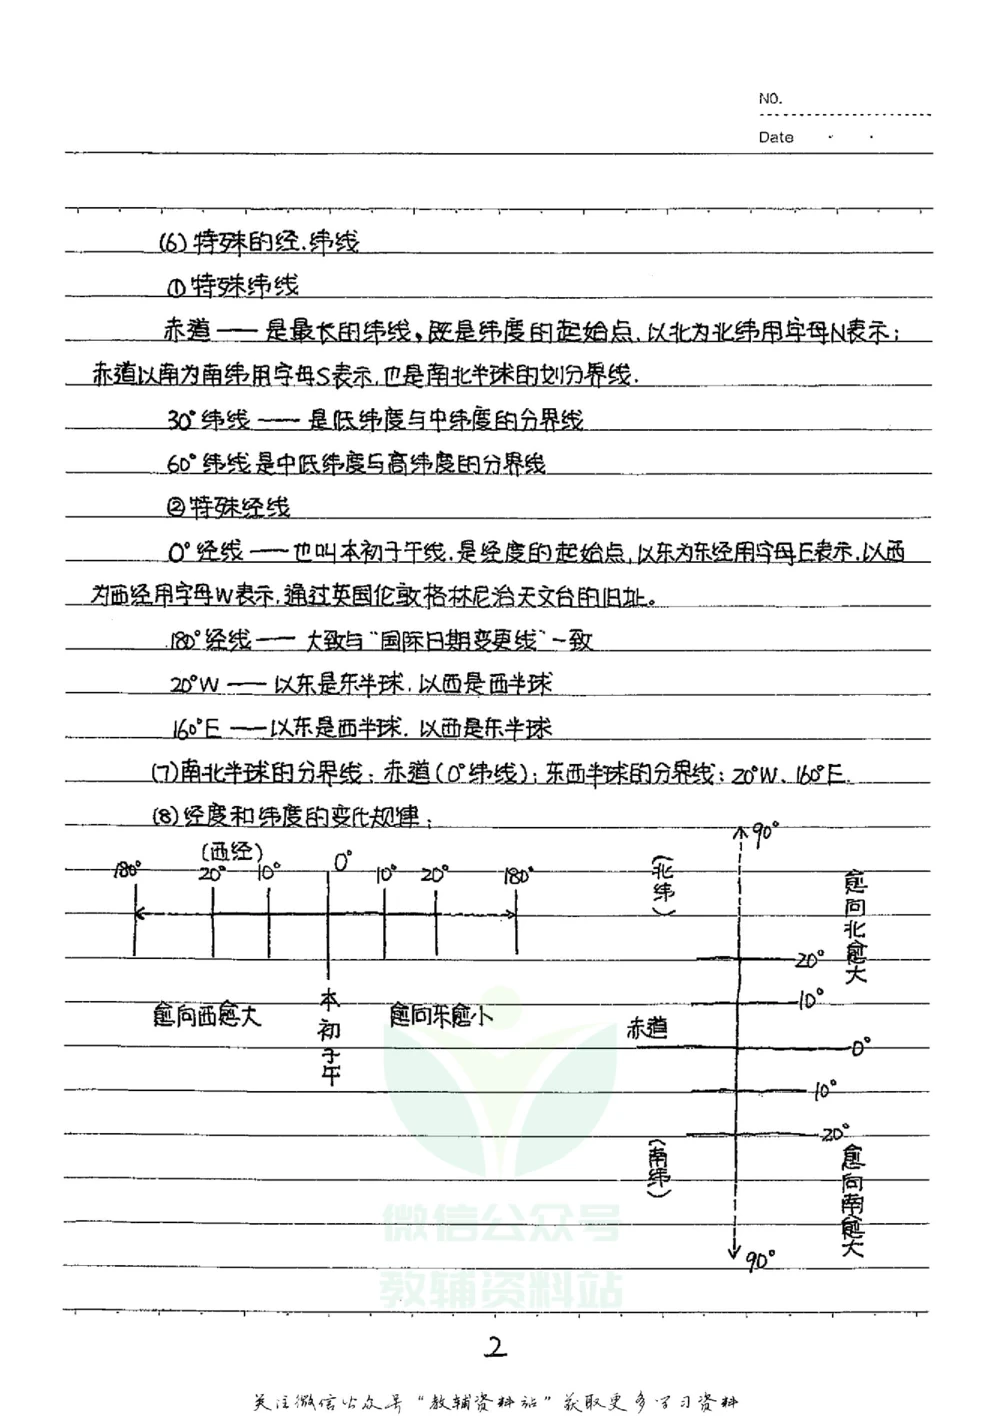 NO.
Date
(6)特殊的经.纬线
①特殊纬线
赤道——是最长的纬线,既是纬度的起始点.以北为北纬用字母N表示;
赤道以南为南纬用字母S表示,也是南北半球的划分界线.
30°纬线——是低纬度与中纬度的分界线
60°纬线是中低纬度与高纬度的分界线
②特殊经线
0°经线——也叫本初子午线.是经度的起始点,以东为东经用字母E表示.以西
为西经用字母W表示,通过英国伦敦格林尼治天文台的旧址。
180°经线——大致与“国际日期变更线”一致
20°W——以东是东半球.以西是西半球
160°E——以东是西半球.以西是东半球
(7)南北半球的分界线:赤道(0°纬线);东西半球的分界线:20°W、160°E.
(8)经度和纬度的变化规律:
(西经)
180° 20° 10° 0° 10° 20° 180°
愈向西愈大
本初子午
愈向东愈小
90°
(北纬)
愈向北愈大
20°
10°
赤道
0°
10°
20°
(南纬)
愈向南愈大
90°
微信公众号
教辅资料站
2
关注微信公众号“教辅资料站”获取更多学习资料